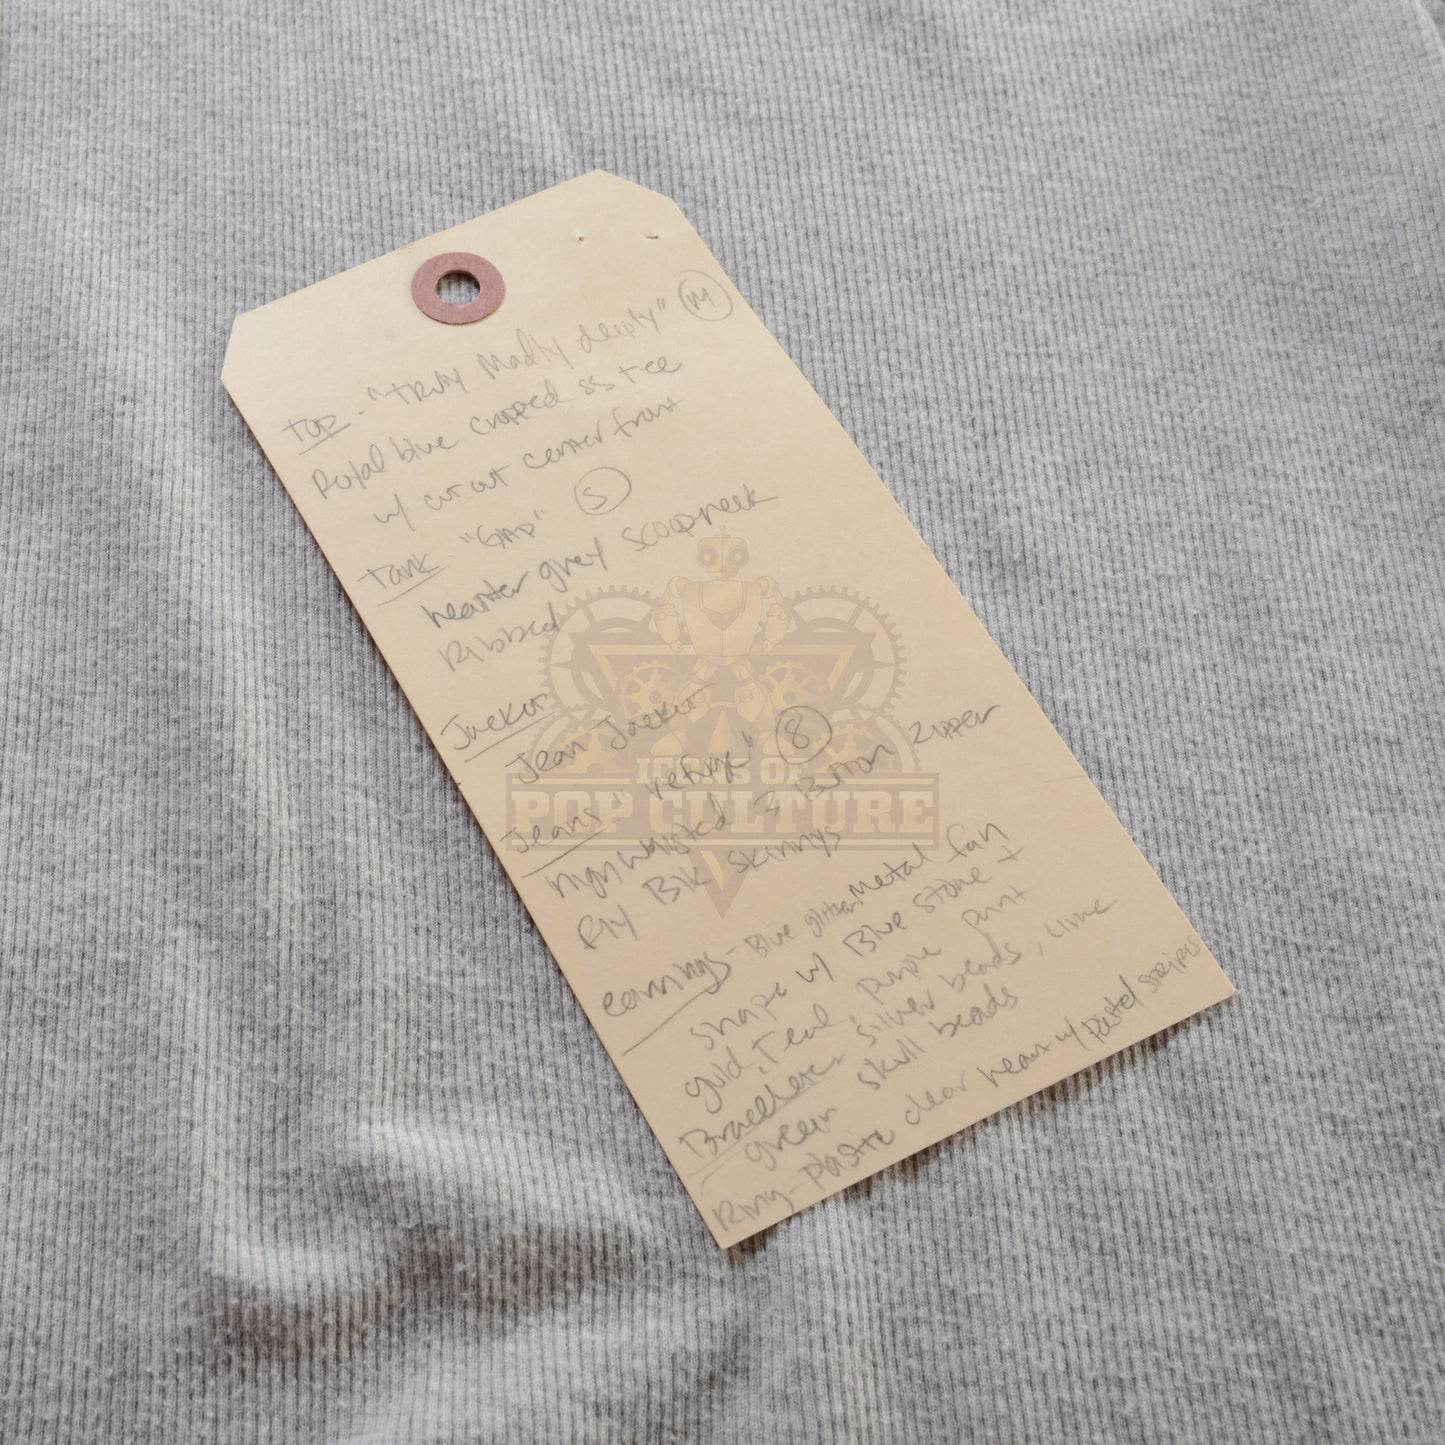 Top - "Truly Madly deeply" M
Royal blue cropped ss tee
w/ cut out center front
Tank - "GAP" S
heather grey scoopneck
Ribbed
Jacket
Jean Jacket
Jeans "refuge" 8
high waisted 3 Button Zipper
fly Blk Skinnys
earrings - Blue glitter, Metal fan
shape w/ Blue stone +
gold, Teal, purple paint
silver beads, lime
green skull beads
Ring - plastic clear heart w/ pastel stripes
ICONS OF
POP CULTURE